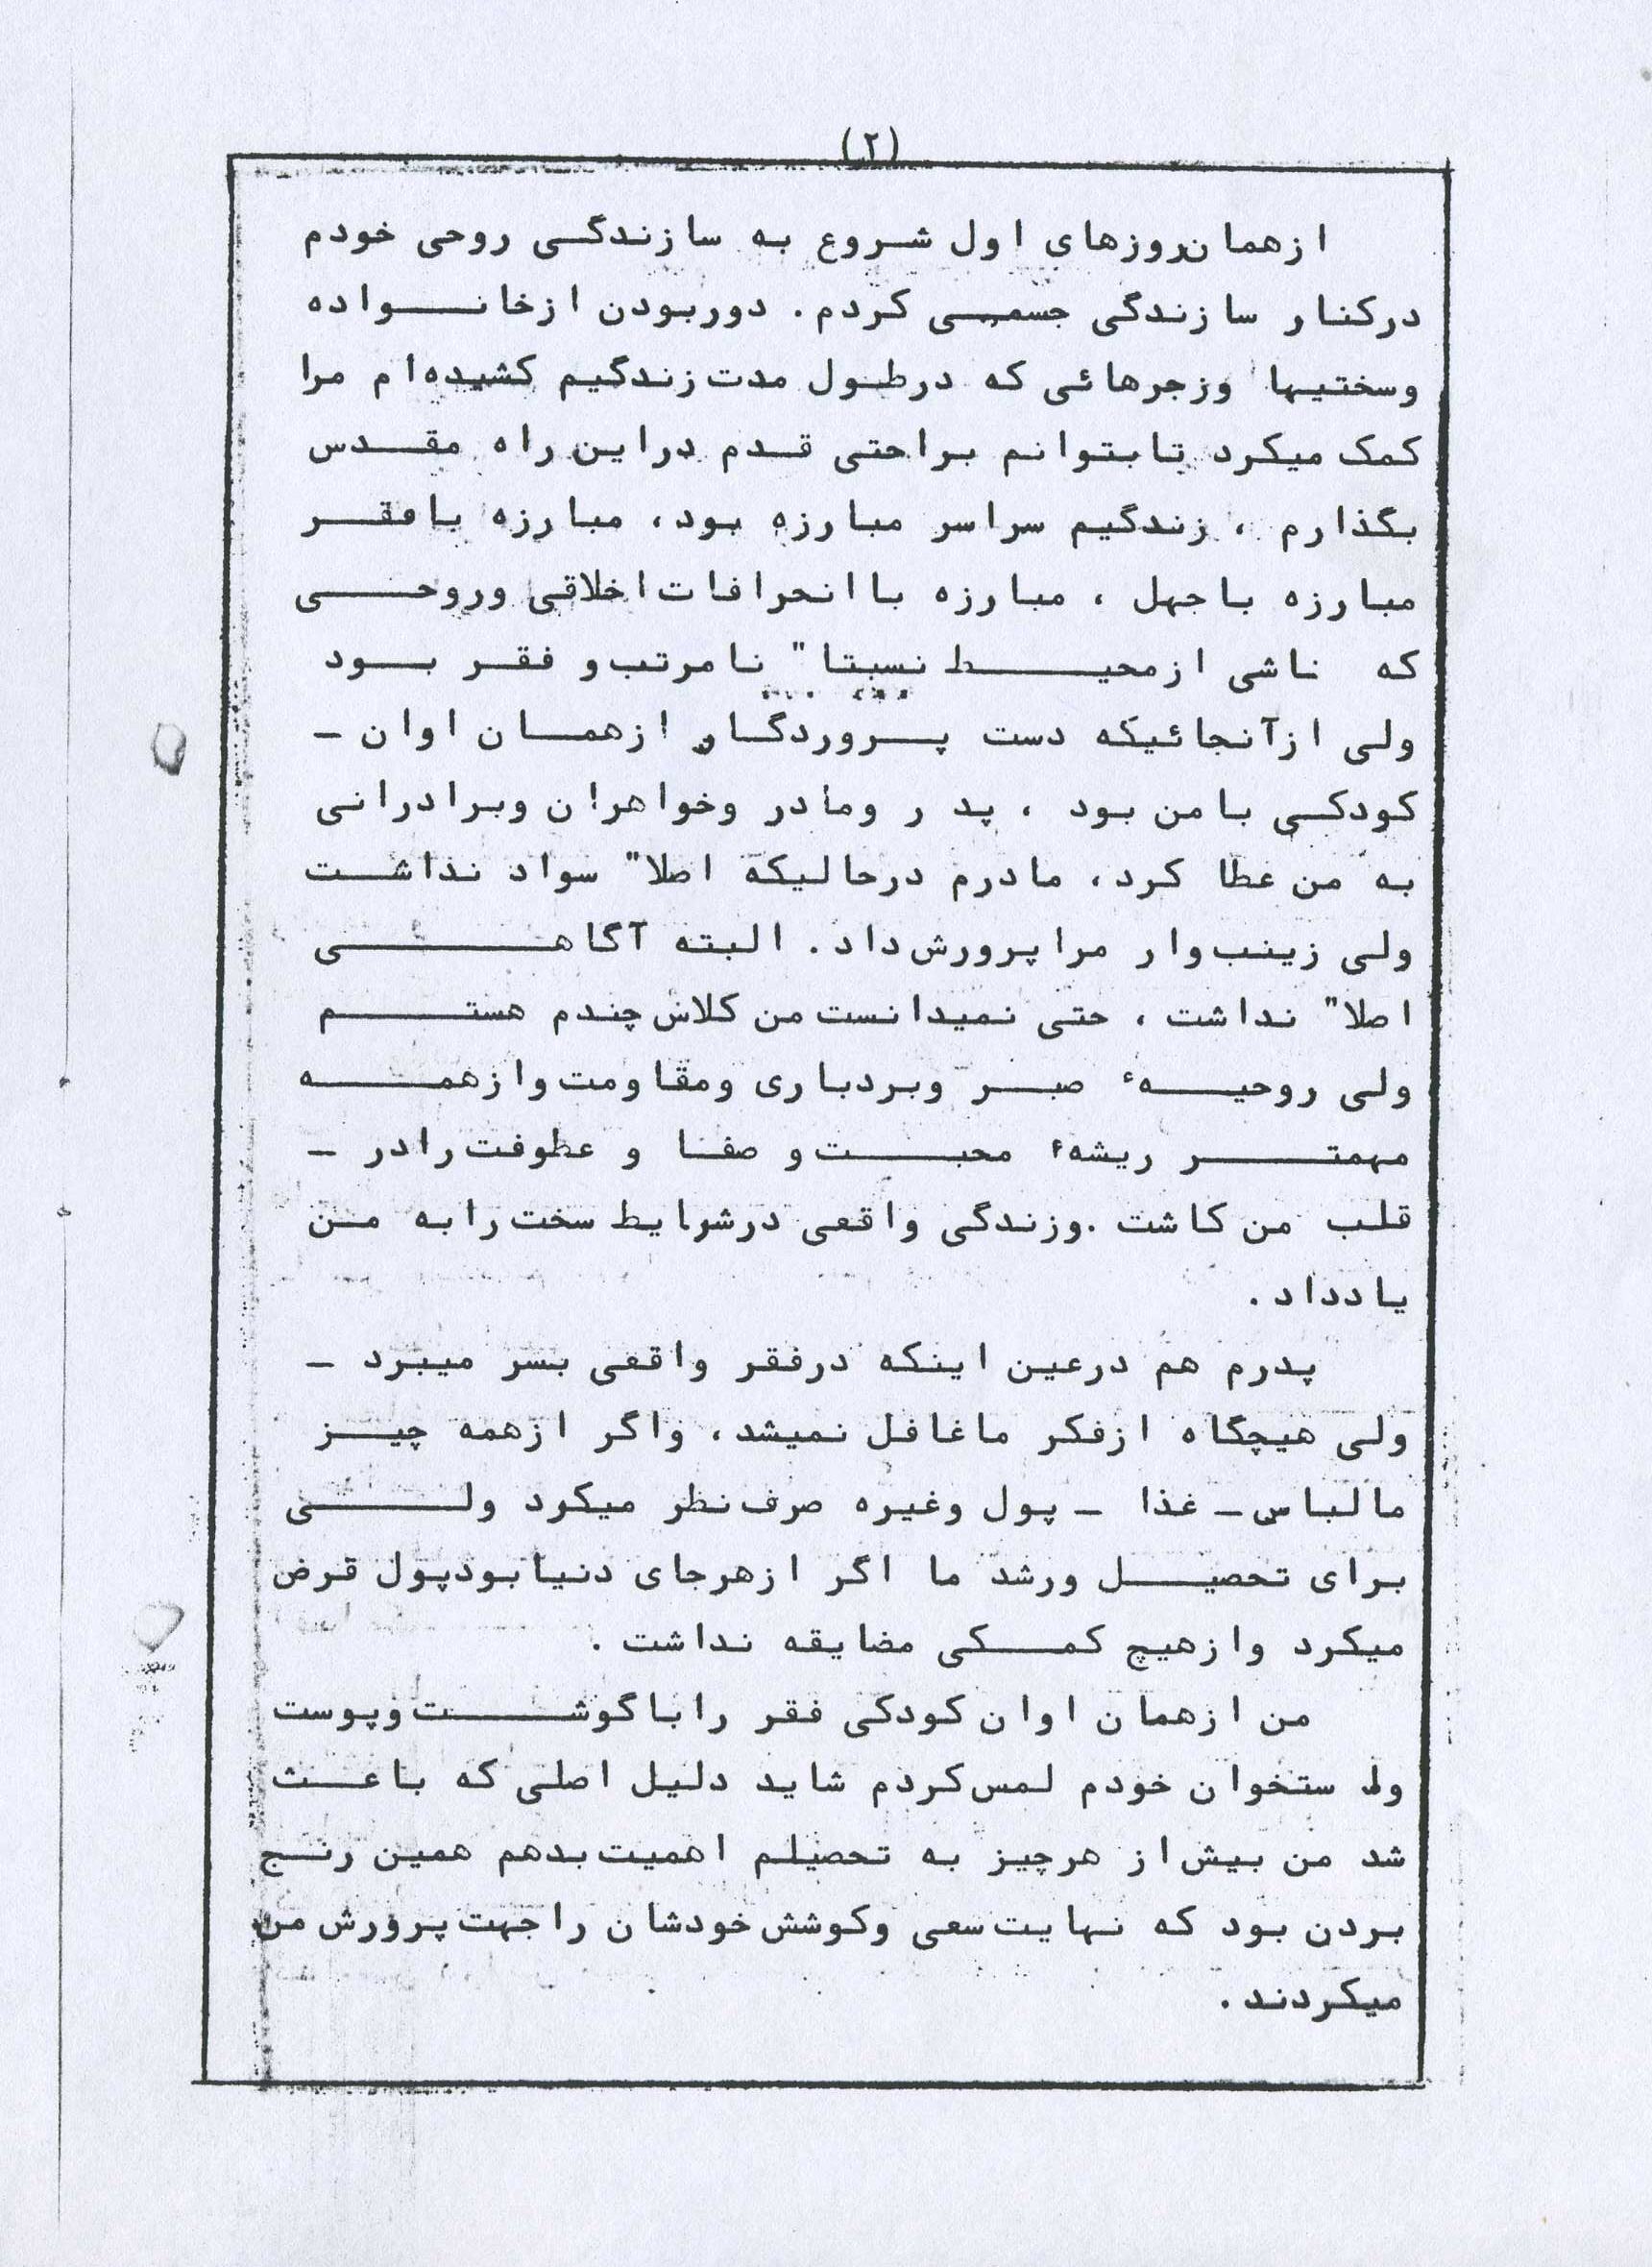 (۲)
ازهمان روزهای اول شروع به سازندگی روحی خودم
درکنار سازندگی جسمی کردم. دوربودن ازخانواده
وسختیها وزجرهائی که درطول مدت زندگیم کشیده‌ام مرا
کمک میکرد تابتوانم براحتی قدم دراین راه مقدس
بگذارم ، زندگیم سراسر مبارزه بود، مبارزه بافقر
مبارزه باجهل ، مبارزه باانحرافات اخلاقی وروحی
که ناشی ازمحیط نسبتا" نامرتب و فقر بود
ولی ازآنجائیکه دست پروردگار ازهمان اوان –
کودکی بامن بود ، پدر ومادر وخواهران وبرادرانی
به من عطا کرد، مادرم درحالیکه اصلا" سواد نداشت
ولی زینب‌وار مرا پرورش داد. البته آگاهی
اصلا" نداشت ، حتی نمیدانست من کلاس چندم هستم
ولی روحیهء صبر وبردباری ومقاومت وازهمه
مهمتر ریشهء محبت و صفا و عطوفت رادر –
قلب من کاشت .وزندگی واقعی درشرایط سخت رابه من
یادداد .
پدرم هم درعین اینکه درفقر واقعی بسر میبرد –
ولی هیچگاه ازفکر ماغافل نمیشد، واگر ازهمه چیز
مالباس – غذا – پول وغیره صرف‌نظر میکرد ولی
برای تحصیل ورشد ما اگر ازهرجای دنیابودپول قرض
میکرد وازهیچ کمکی مضایقه نداشت .
من ازهمان اوان کودکی فقر راباگوشت وپوست
واستخوان خودم لمس کردم شاید دلیل اصلی که باعث
شد من بیش از هرچیز به تحصیلم اهمیت بدهم همین رنج
بردن بود که نهایت سعی وکوشش خودشان راجهت پرورش من
میکردند .